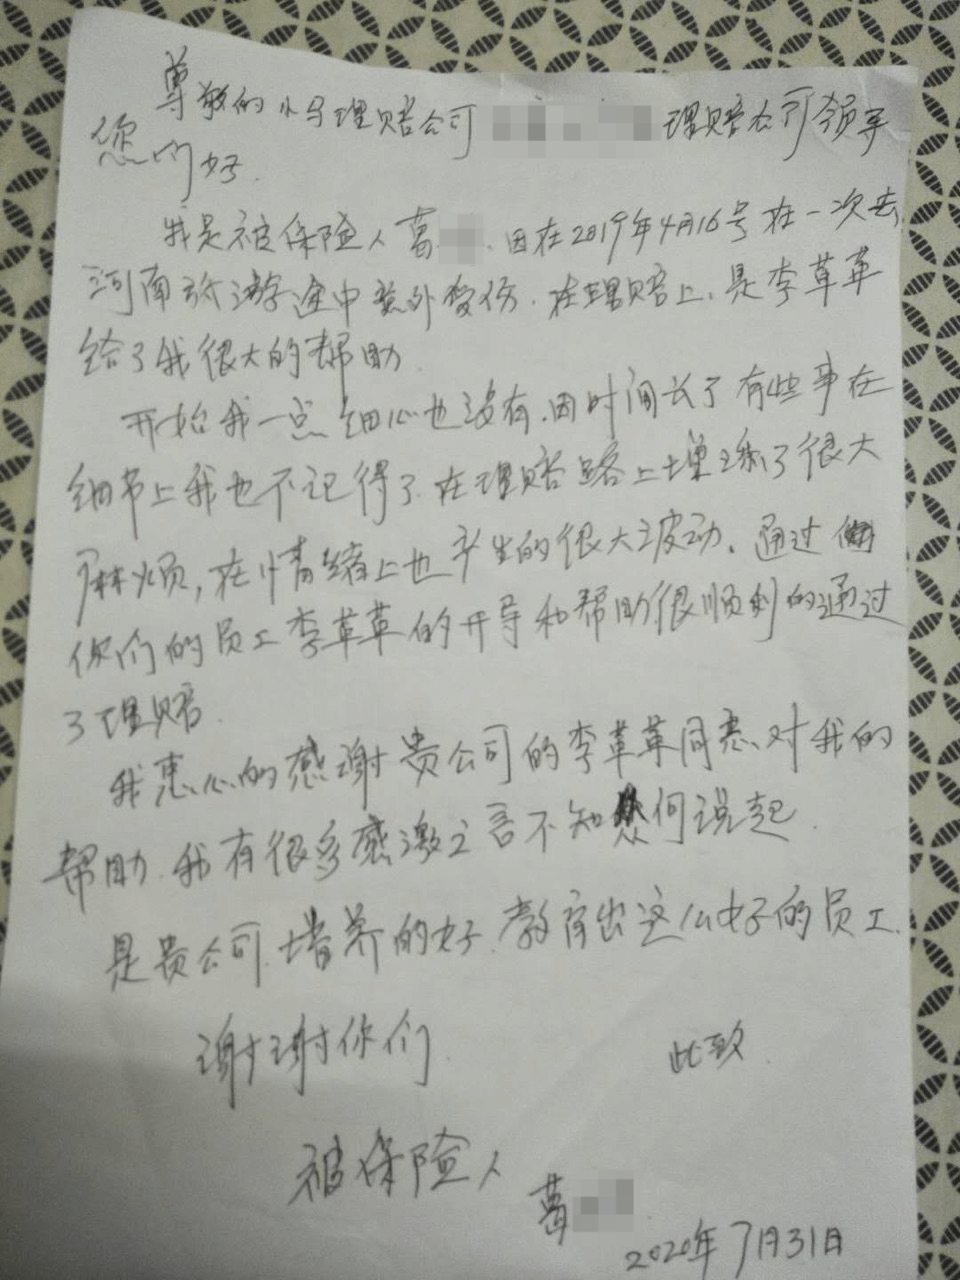 尊敬的小马理赔公司 理赔公司领导
您们好.
我是被保险人葛 .因在2019年4月16号在一次去
河南旅游途中意外受伤.在理赔上.是李革革
给了我很大的帮助
开始我一点细心也没有.因时间长了有些事在
细节上我也不记得了.在理赔路上增添了很大
麻烦,在情绪上也产生的很大波动.通过
你们的员工李革革的开导和帮助很顺利的通过
了理赔.
我衷心的感谢贵公司的李革革同志.对我的
帮助.我有很多感激之言不知从何说起.
是贵公司.培养的好.教育出这么好的员工.
谢谢你们. 此致.
被保险人
葛
2020年7月31日